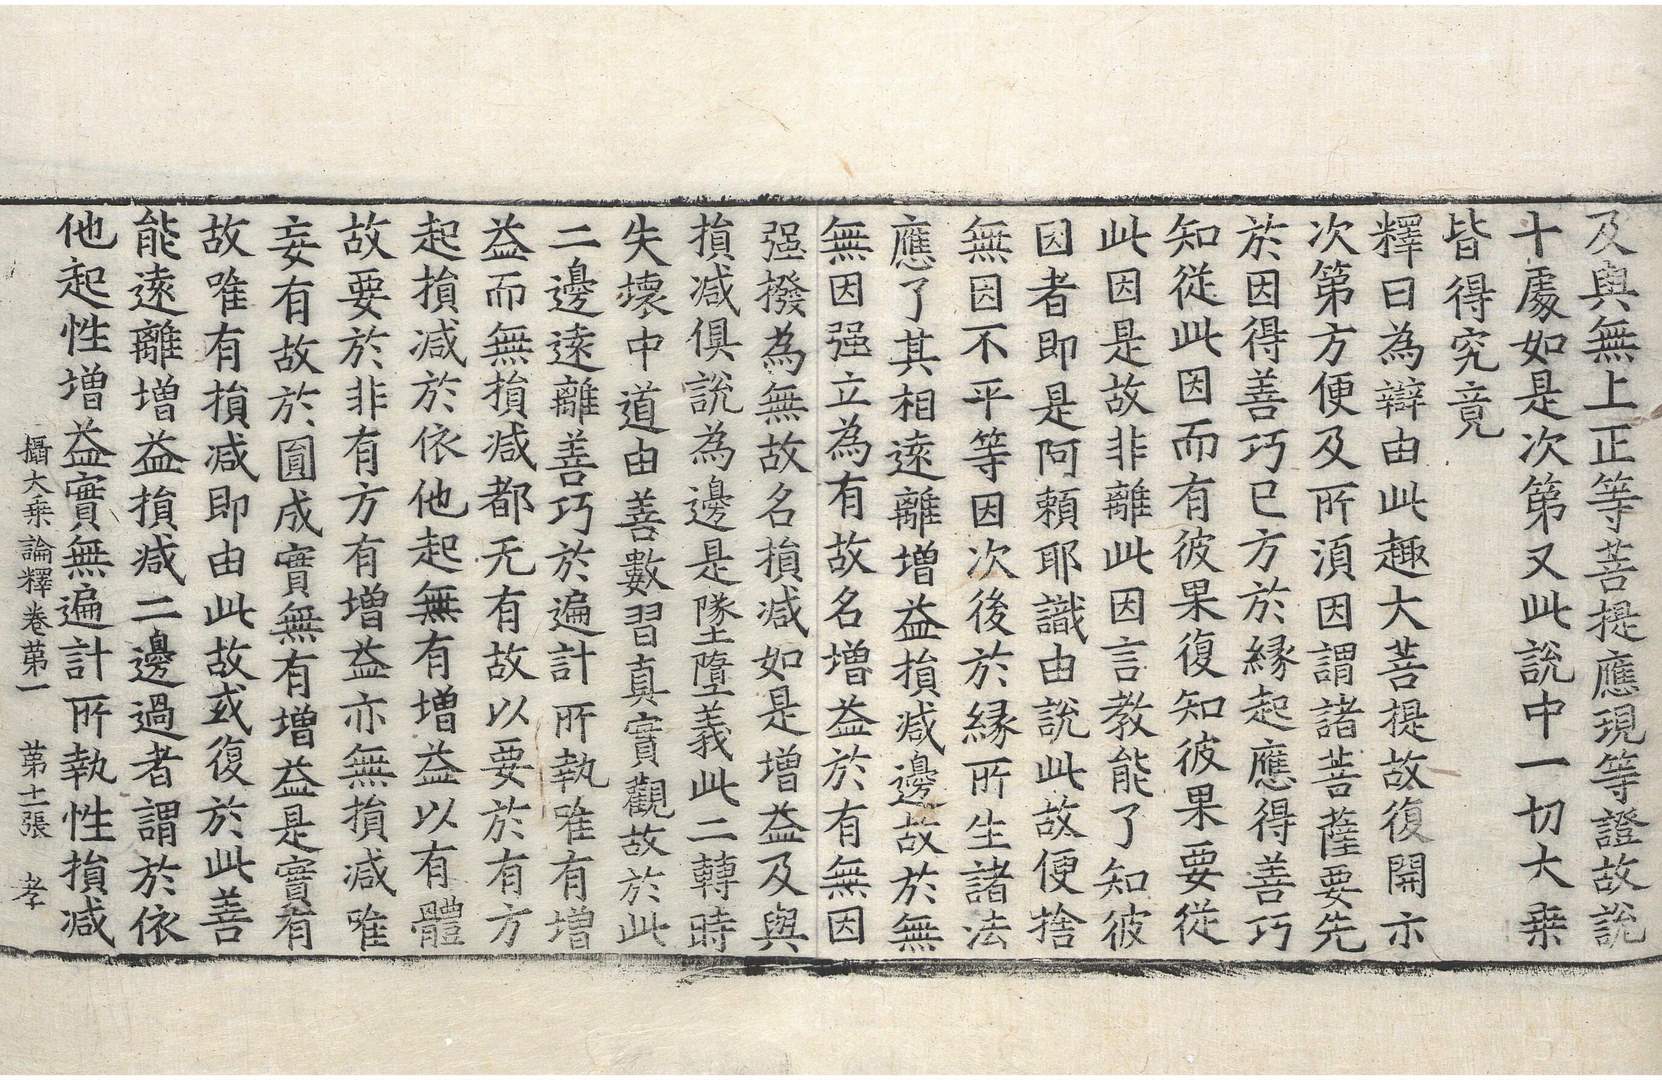 及與無上正等菩提應現等證故說
十處如是次第又此說中一切大乗
皆得究竟
釋曰為辯由此趣大菩提故復開示
次第方便及所湏因謂諸菩薩要先
於因得善巧已方於縁起應得善巧
知從此因而有彼果復知彼果要從
此因是故非離此因言教能了知彼
因者即是阿頼耶識由說此故便捨
無因不平等因次後於縁所生諸法
應了其相遠離增益損减邊故於無
無因强立為有故名增益於有無因
强撥為無故名損减如是增益及與
損减俱說為邊是墜墮義此二轉時
失壞中道由善數習真實觀故於此
二邊遠離善巧於遍計所執唯有增
益而無損减都无有故以要於有方
起損减於依他起無有增益以有體
故要於非有方有增益亦無損减唯
妄有故於圓成實無有增益是實有
故唯有損减即由此故或復於此善
能遠離增益損减二邊過者謂於依
他起性增益實無遍計所執性損减
攝大乗論釋卷苐一 苐十一張 孝